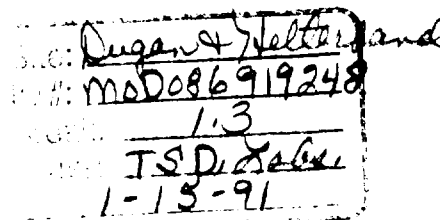 Dugan & Helterbrand
MOD086919248
1.3
TSD, Labs.
1-15-91